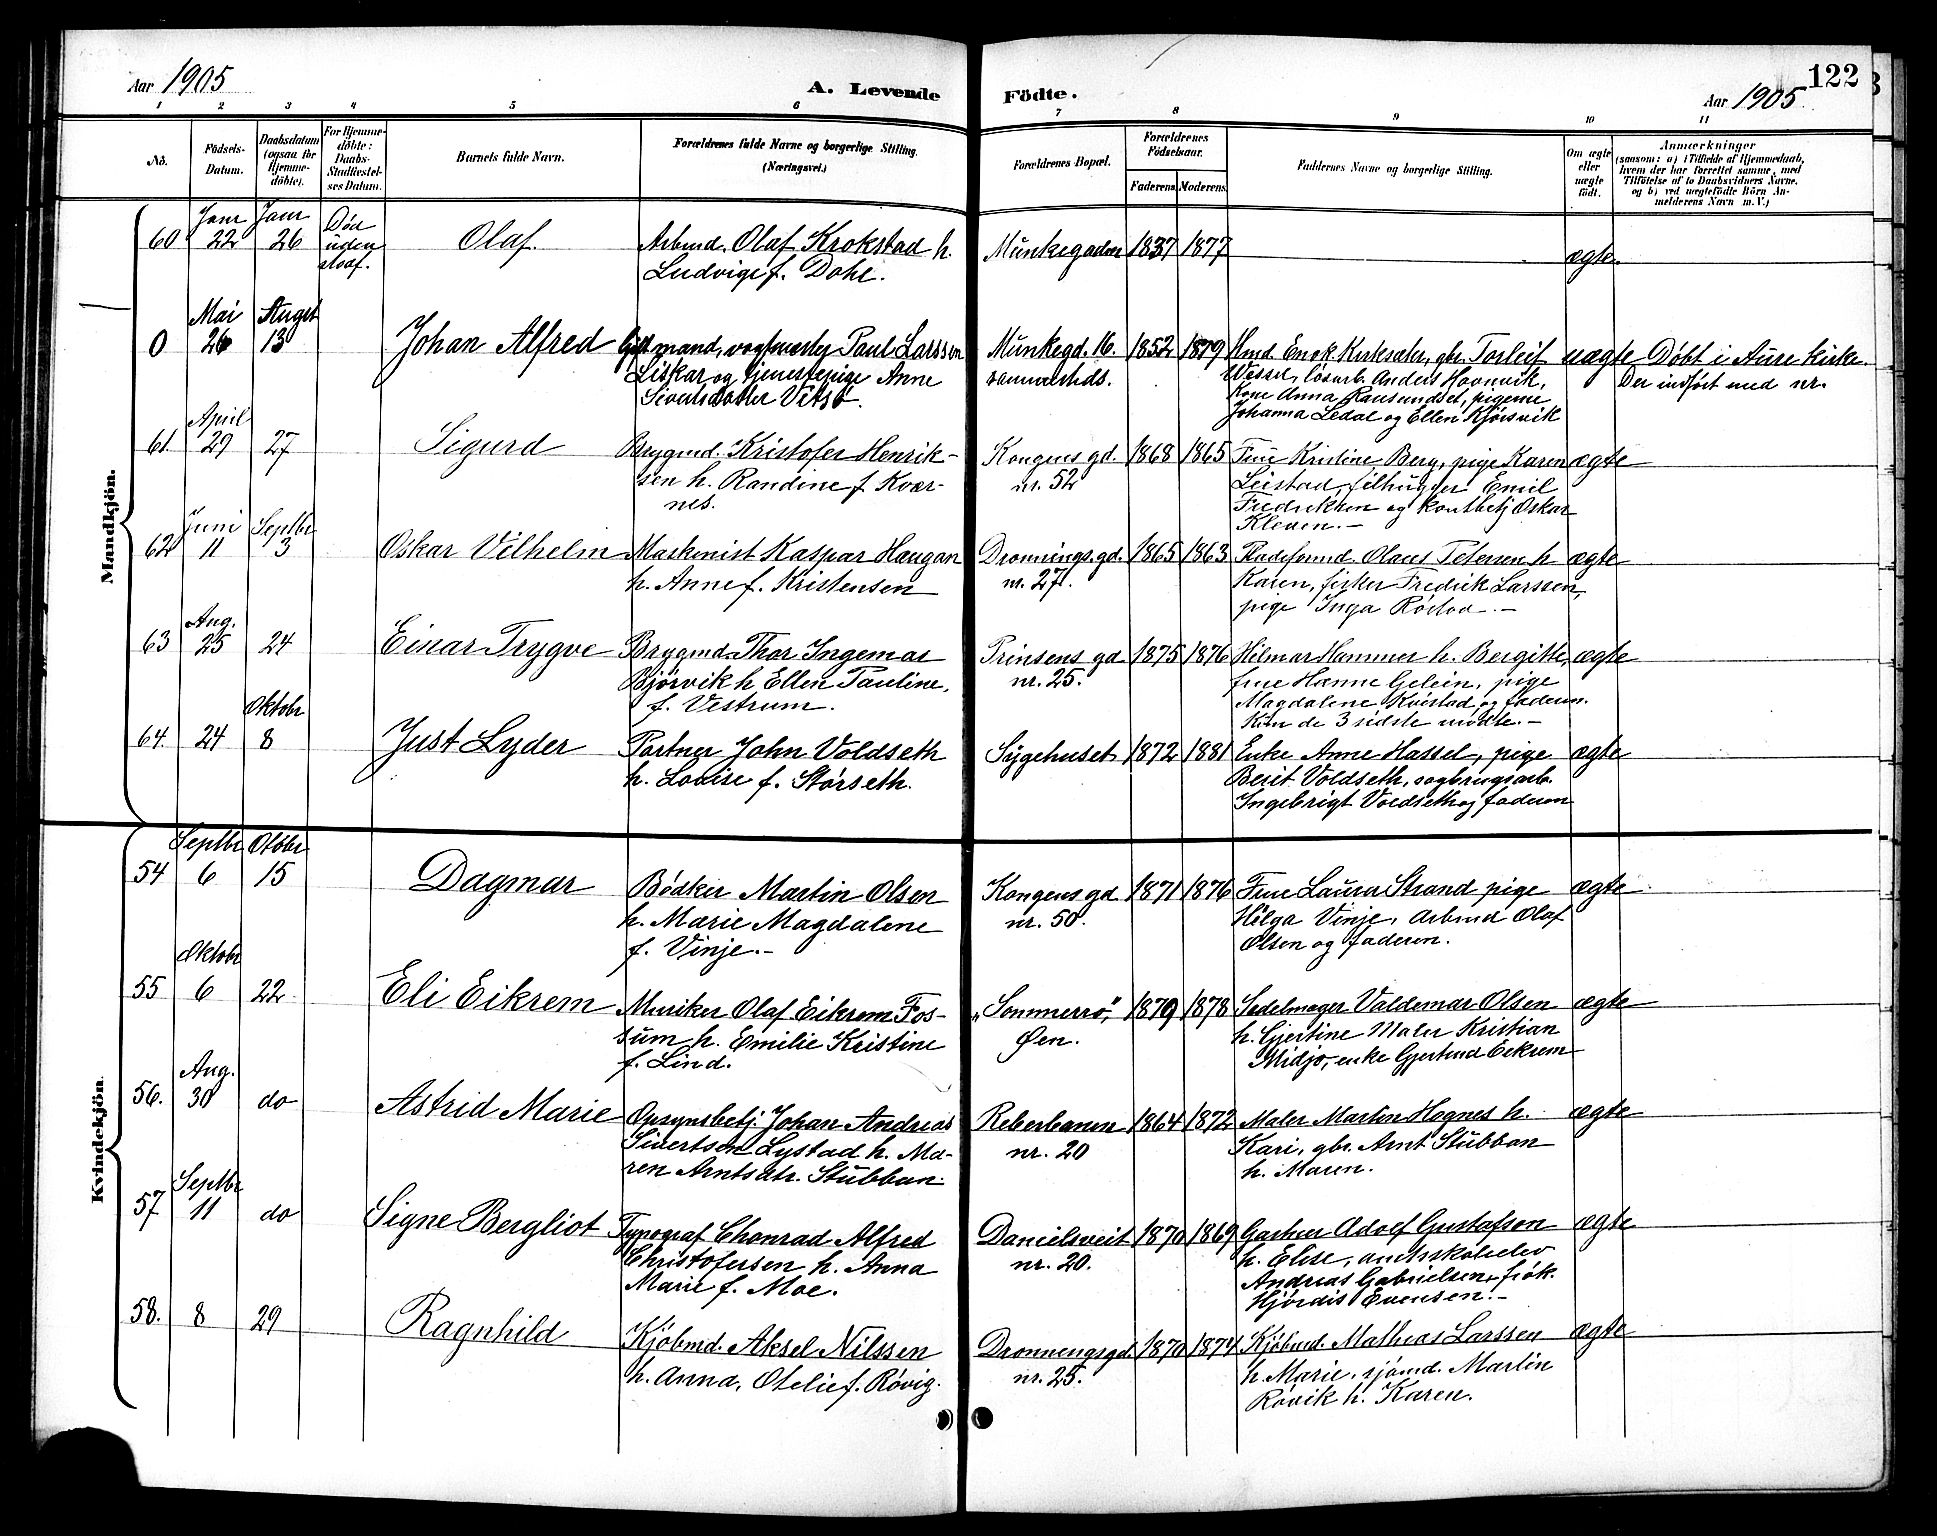 Aar 1905
A. Levende
Födte.
Aar 1905
122
1 2 3 4 5 6 7 8 9 10 11
No.
Födsels-
Datum.
Daabsdatum
(ogsaa for
Hjemme-
döbte).
For Hjemme-
döbte:
Daabs-
Stadfæstel-
ses Datum.
Barnets fulde Navn.
Forældrenes fulde Navne og borgerlige Stilling.
(Næringsvei.)
Forældrenes Bopæl.
Forældrenes
Födselsaar.
Faderens. Moderens.
Faddernes Navne og borgerlige Stilling.
Om ægte
eller
uægte
födt.
Anmærkninger
(saasom: a) i Tilfælde af Hjemmedaab,
hvem der har forrettet samme, med
Tilföielse af to Daabsvidners Navne,
og b) ved uægtefödte Börn An-
melderens Navn m. V.)
Mandkjön.
60 Janr 22 Janr 26
Død
uden
stadf.
Olaf.
Arbmd. Olaf Krokstad h.
Ludvige f. Dahl.
Munkegaden 1837 1877 ægte.
0 Mai 26 August 13
Johan Alfred
Gift mand, Paul Larssen
Liskar og tjenestepige Anne
Sivertsdatter Vitsø.
Munkegd. 16.
sammesteds.
1852 1879
Hmd. Enok Kirksæter, gbr. Torleif
Wessel, løsarb. Anders Hovnvik,
Kone Anna Rausundset, pigerne
Johanna Ledal og Ellen Kjørsvik
uægte
Døbt i Aure kirke.
Der indført med nr.
61. April 29 27
Sigurd
Brygmd. Kristofer Henrik-
sen h. Randine f. Kvær-
nes.
Kongens gd.
nr. 52
1868 1865
Frue Kristine Berg, pige Karen
Leistad, filhugger Emil
Fredriksen og kontbetj Oskar
Kleven. –
ægte
62 Juni 11 Septbr 3
Oskar Vilhelm
Maskinist Kaspar Haugan
h. Anne f. Kristensen
Dronnings. gd.
nr. 27.
1865 1863
Pladeformd. Olaus Petersen h
Karen, fisker Fredrik Larssen,
pige Inga Rostva . –
ægte
63 Aug. 25 24
Einar Trygve
Brygmd. Thor Ingemar
Bjørvik h Ellen Pauline,
f. Vestrum.
Prinsens gd
nr. 25.
1875 1876
Hilmar Hammer h. Bergitte,
frue Hanne Gelein, pige
Magdalene Kvistad og faderen.
Kun de 3 sidste mødte. –
ægte
64. 24 Oktobr 8
Just Lyder
Portner John Voldseth
h. Louise f. Storseth.
Sygehuset 1872 1881
Enke Anne Hassel, pige
Berit Voldseth, sagbrugsarb.
Ingebrigt Voldseth og faderen
ægte
Kvindekjön.
54 Septbr 6 Otobr 15
Dagmar
Bødker Martin Olsen
h. Marie Magdalene
f. Vinje. –
Kongens gd
nr. 50.
1871 1876
Frue Laura Strand pige
Helga Vinje, Arbmd Olaf
Olsen og faderen.
ægte
55 Oktobr 6 22
Eli Eikrem
Musiker Olaf Eikrem Fos-
sum h. Emilie Kristine
f. Lind.
„Sommerro",
Øen.
1879 1878
Sadelmager Valdemar Olsen
h. Gjertine Maler Kristian
Midjo, enke Gjertrud Eikrem
ægte
56. Aug. 30 do
Astrid Marie
Opsynsbetj. Johan Andreas
Sivertsen Lystad h. Ma-
ren Arntsdtr. Stubban.
Reberbanen
nr. 20
1864 1872
Maler Martin Hognes h.
Kari, gbr. Arnt Stubban
h. Maren.
ægte
57 Septbr 11 do
Signe Bergliot
Typograf Chonrad Alfred
Christofersen h. Anna
Marie f. Moe.
Danielsveit
nr. 20.
1870 1869
Garver Adolf Gustafson
h. Elise, amtsskoleelev
Andreas Gabrielsen, frøk.
Hjørdis Evensen. –
ægte
58. 8 29
Ragnhild
Kjøbmd. Aksel Nilssen
h. Anna, Otelie f. Røvig.
Dronningsgd.
nr. 25.
1870 1874
Kjøbmd. Mathias Larssen
h. Marie, sjømd. Martin
Røvik h. Karen.
ægte